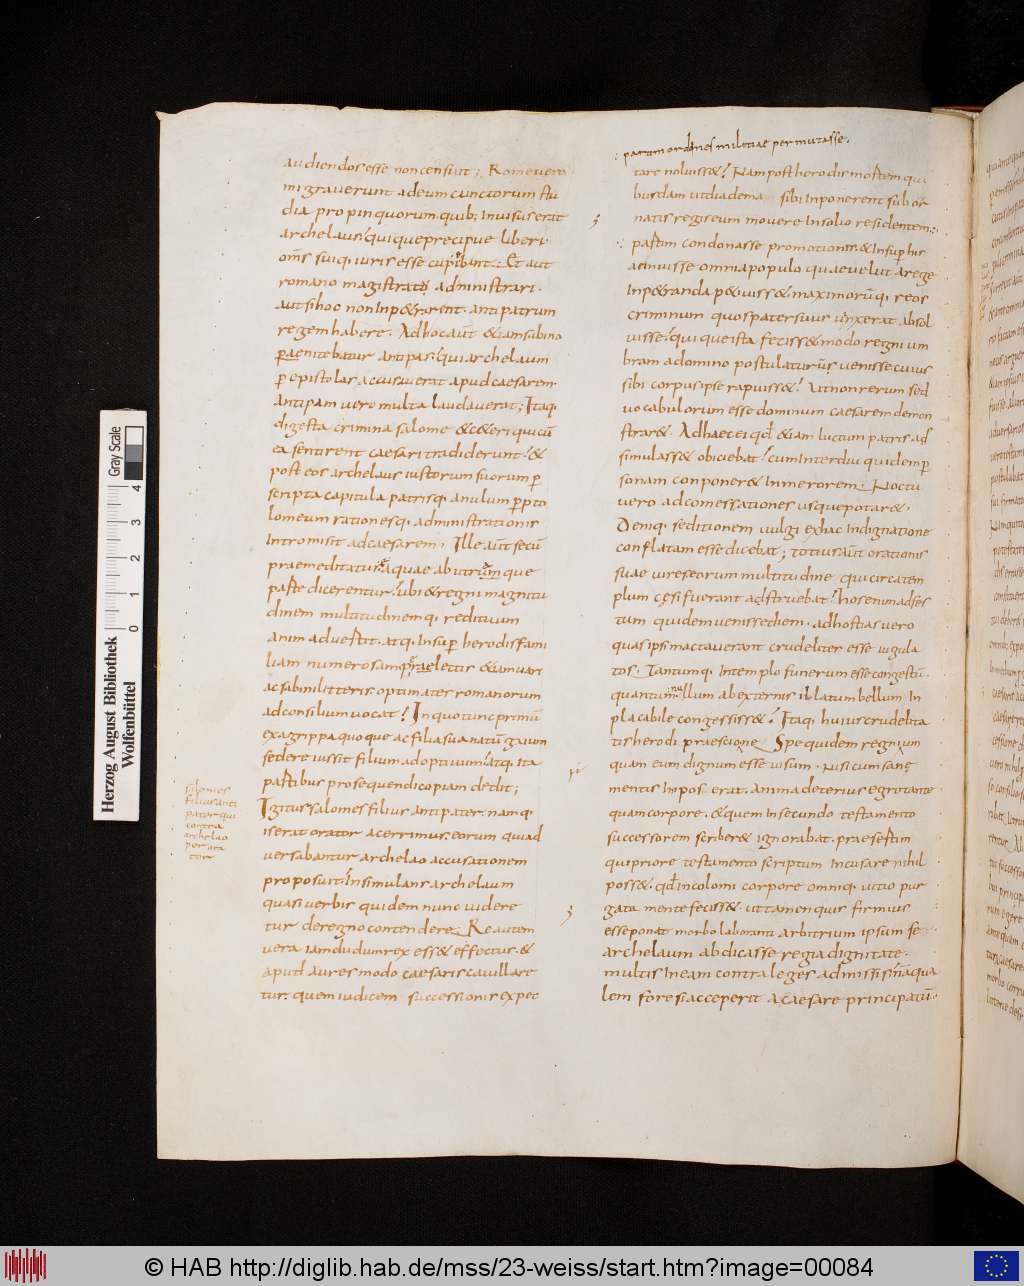 audiendos esse non censuit; Rome vero
migraverunt adeum cunctorum stu
dia propinquorum quib; invisus erat
archelaus! quique precipue liberi.
om̄s suiq; iuris esse cupibant. Et aut
romano magistrato administrari.
aut si hoc non inp&rarent. antipatrum
regem habere. Ad hoc aūt &iam sabino
paenitebatur antipas! qui archelaum
p epistolas accusaverat apud caesarem.
Antipam vero multa laudaverat; Itaq;
digesta crimina salome &c&eri qui cū
ea sentirent caesari tradiderunt! &
post eos archelaus iustorum suorum p
scripta capitula patrisq; anulum p pto
lomeum rationesq; administrationis
Intromisit ad caesarem. Ille aūt secū
praemeditatus ea quae ab utrumque
paste dicerentur! ubi &regni magnitu
dinem multitudinemq; redituum
anim advestit. atq; Insup herodis fami
liam numerosam praelectis &iam vari
ac sabini litteris. optimates romanorum
ad consilium vocat! In quo tunc primū
ex agrippa quoque ac filia sua natū gaium
sedere iussit filium adoptivum! atq; ita
pastibus prosequendi copiam dedit;
Igitur salomes filius antipater. namq;
is erat orator acerrimus. eorum quiad
versabantur archelao accusationem
proposuit! Insimulans archelaum
quasi verbis quidem nunc videre
tur de regno contendere. Re autem
vera iamdudum rex ess& effectus. &
aput aures modo caesaris cavillare
tur. quem iudicem successionis expec
salomes
filius anti
pater qui
contra
archelao
per ora
tor
parum ordines militiae permutasse.
tare noluiss&! Nam post herodis mostem qui
busdam ut diadema sibi inponerent subor
natis regis eum movere In solio residentem.
pastim condonasse promotionis. & Insup his
adnuisse omnia populo quae velut a rege
Inp&randa p&uiss& maximorūq; reos
criminum quos pater suus vinxerat absol
visse! qui que ista feciss& modo regni um
bram a domino postulaturus venisse cuius
sibi corpus ipse rapuiss&! Ut non rerum sed
vocabulorum esse dominum caesarem demon
strar&. Ad haec ei qd &iam luctum patris ad
simulass& obiciebat! cum Interdiu quidem p
sonam conponer& In merorem. Noctu
vero ad comessationes usque potar&.
Deniq; seditionem vulgi ex hac indignatione
conflatam esse dicebat; totius aūt orationis
suae vires eorum multitudine qui circa tem
plum cesi fuerant adstruebat! hos enim ad fes
tum quidem venisse diem. ad hostias vero
quas ipsi mactaverant crudeliter esse iugula
tos. Tantumq; In templo funerum esse congestū.
quantum nullum ab externis illatum bellum In
placabile congessiss&! Itaq; huius crudelita
tis herodi praescione spe quidem regni um
quam eum dignum esse visum. Nisi cum sane
mentis Impos erat. anima deterius egrotante
quam corpore. &quem In secundo testamento
successorem scriber& ignorabat. praesestim
qui priore testamento scriptum incusare nihil
poss&. qd incolomi corpore omniq; vitio pur
gata mente feciss&. ut tamen quis firmius
esse ponat morbo laborantis arbitrium ipsum se
archelaum abdicasse regia dignitate.
multis In eam contra leges admissis! na qua
lem fore si acceperit a caesare principatū.
Herzog August Bibliothek
Wolfenbüttel
0 1 2 3 4
Gray Scale
© HAB http://diglib.hab.de/mss/23-weiss/start.htm?image=00084